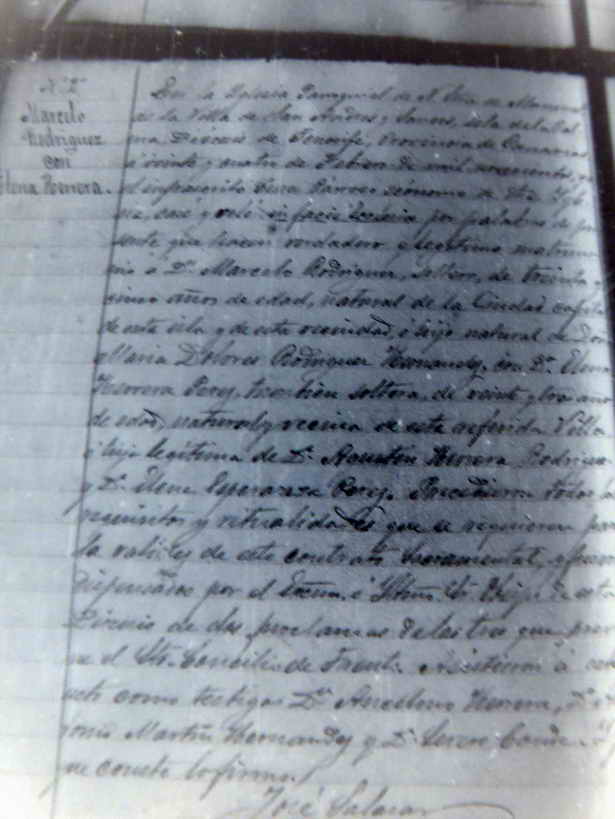 N.º 2º
Marcelo
Rodriguez
con
Elena Herrera.
En la Iglesia Parroquial de N. Sra. de
de la Villa de San Andres y Sauces, isla de la Pal
ma Diócesis de Tenerife, Provincia de Canarias,
á veinte y cuatro de Febrero de mil novecientos
el infrascrito Cura Párroco ecónomo de
casé y velé in facie Ecclesia por palabras de pre
sente que hacen verdadero y legítimo matrimo
nio á D. Marcelo Rodriguez, soltero, de treinta y
cinco años de edad, natural de la Ciudad capital
de esta isla y de esta vecindad, é hijo natural de Doña
Maria Dolores Rodriguez Hernandez, con Dª Elena
Herrera Perez, tambien soltera, de veinte y tres años
de edad, natural y vecina de esta referida Villa
é hija legítima de D. Agustin Herrera Rodriguez
y Dª Elena Esperanza Perez. Precedieron todos los
requisitos y ritualidades que se requieren para
la validez de este contrato Sacramental, y fueron
dispensados por el Excmo. é Iltmo. Sr. Obispo de esta
Diócesis de dos proclamas de las tres que previe
ne el Sto. Concilio de Trento. Asistieron á este
acto como testigos D. Anselmo Herrera, D.
Martin Hernandez y D.
que conste lo firmo.
José Salazar